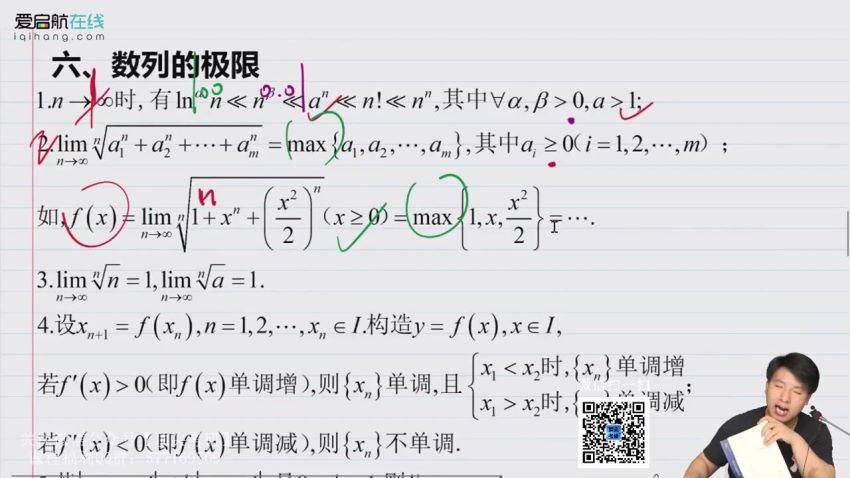 爱启航在线
iqihang.com
六、数列的极限
1.n→∞时, 有ln^α n ≪ n^β ≪ a^n ≪ n! ≪ n^n, 其中∀α, β > 0, a > 1;
100 0.01
2.lim_{n→∞} ⁿ√(a_1^n + a_2^n + ⋯ + a_m^n) = max{a_1, a_2, ⋯, a_m}, 其中a_i ≥ 0(i = 1, 2, ⋯, m);
n
如, f(x) = lim_{n→∞} ⁿ√(1 + x^n + (x²/2)^n) (x ≥ 0) = max{1, x, x²/2} = ⋯.
3.lim_{n→∞} ⁿ√n = 1, lim_{n→∞} ⁿ√a = 1.
4.设x_{n+1} = f(x_n), n = 1, 2, ⋯, x_n ∈ I.构造y = f(x), x ∈ I,
若f′(x) > 0(即f(x)单调增), 则{x_n}单调, 且 { x_1 < x_2时, {x_n}单调增
x_1 > x_2时, {x_n}单调减 ;
若f′(x) < 0(即f(x)单调减), 则{x_n}不单调.